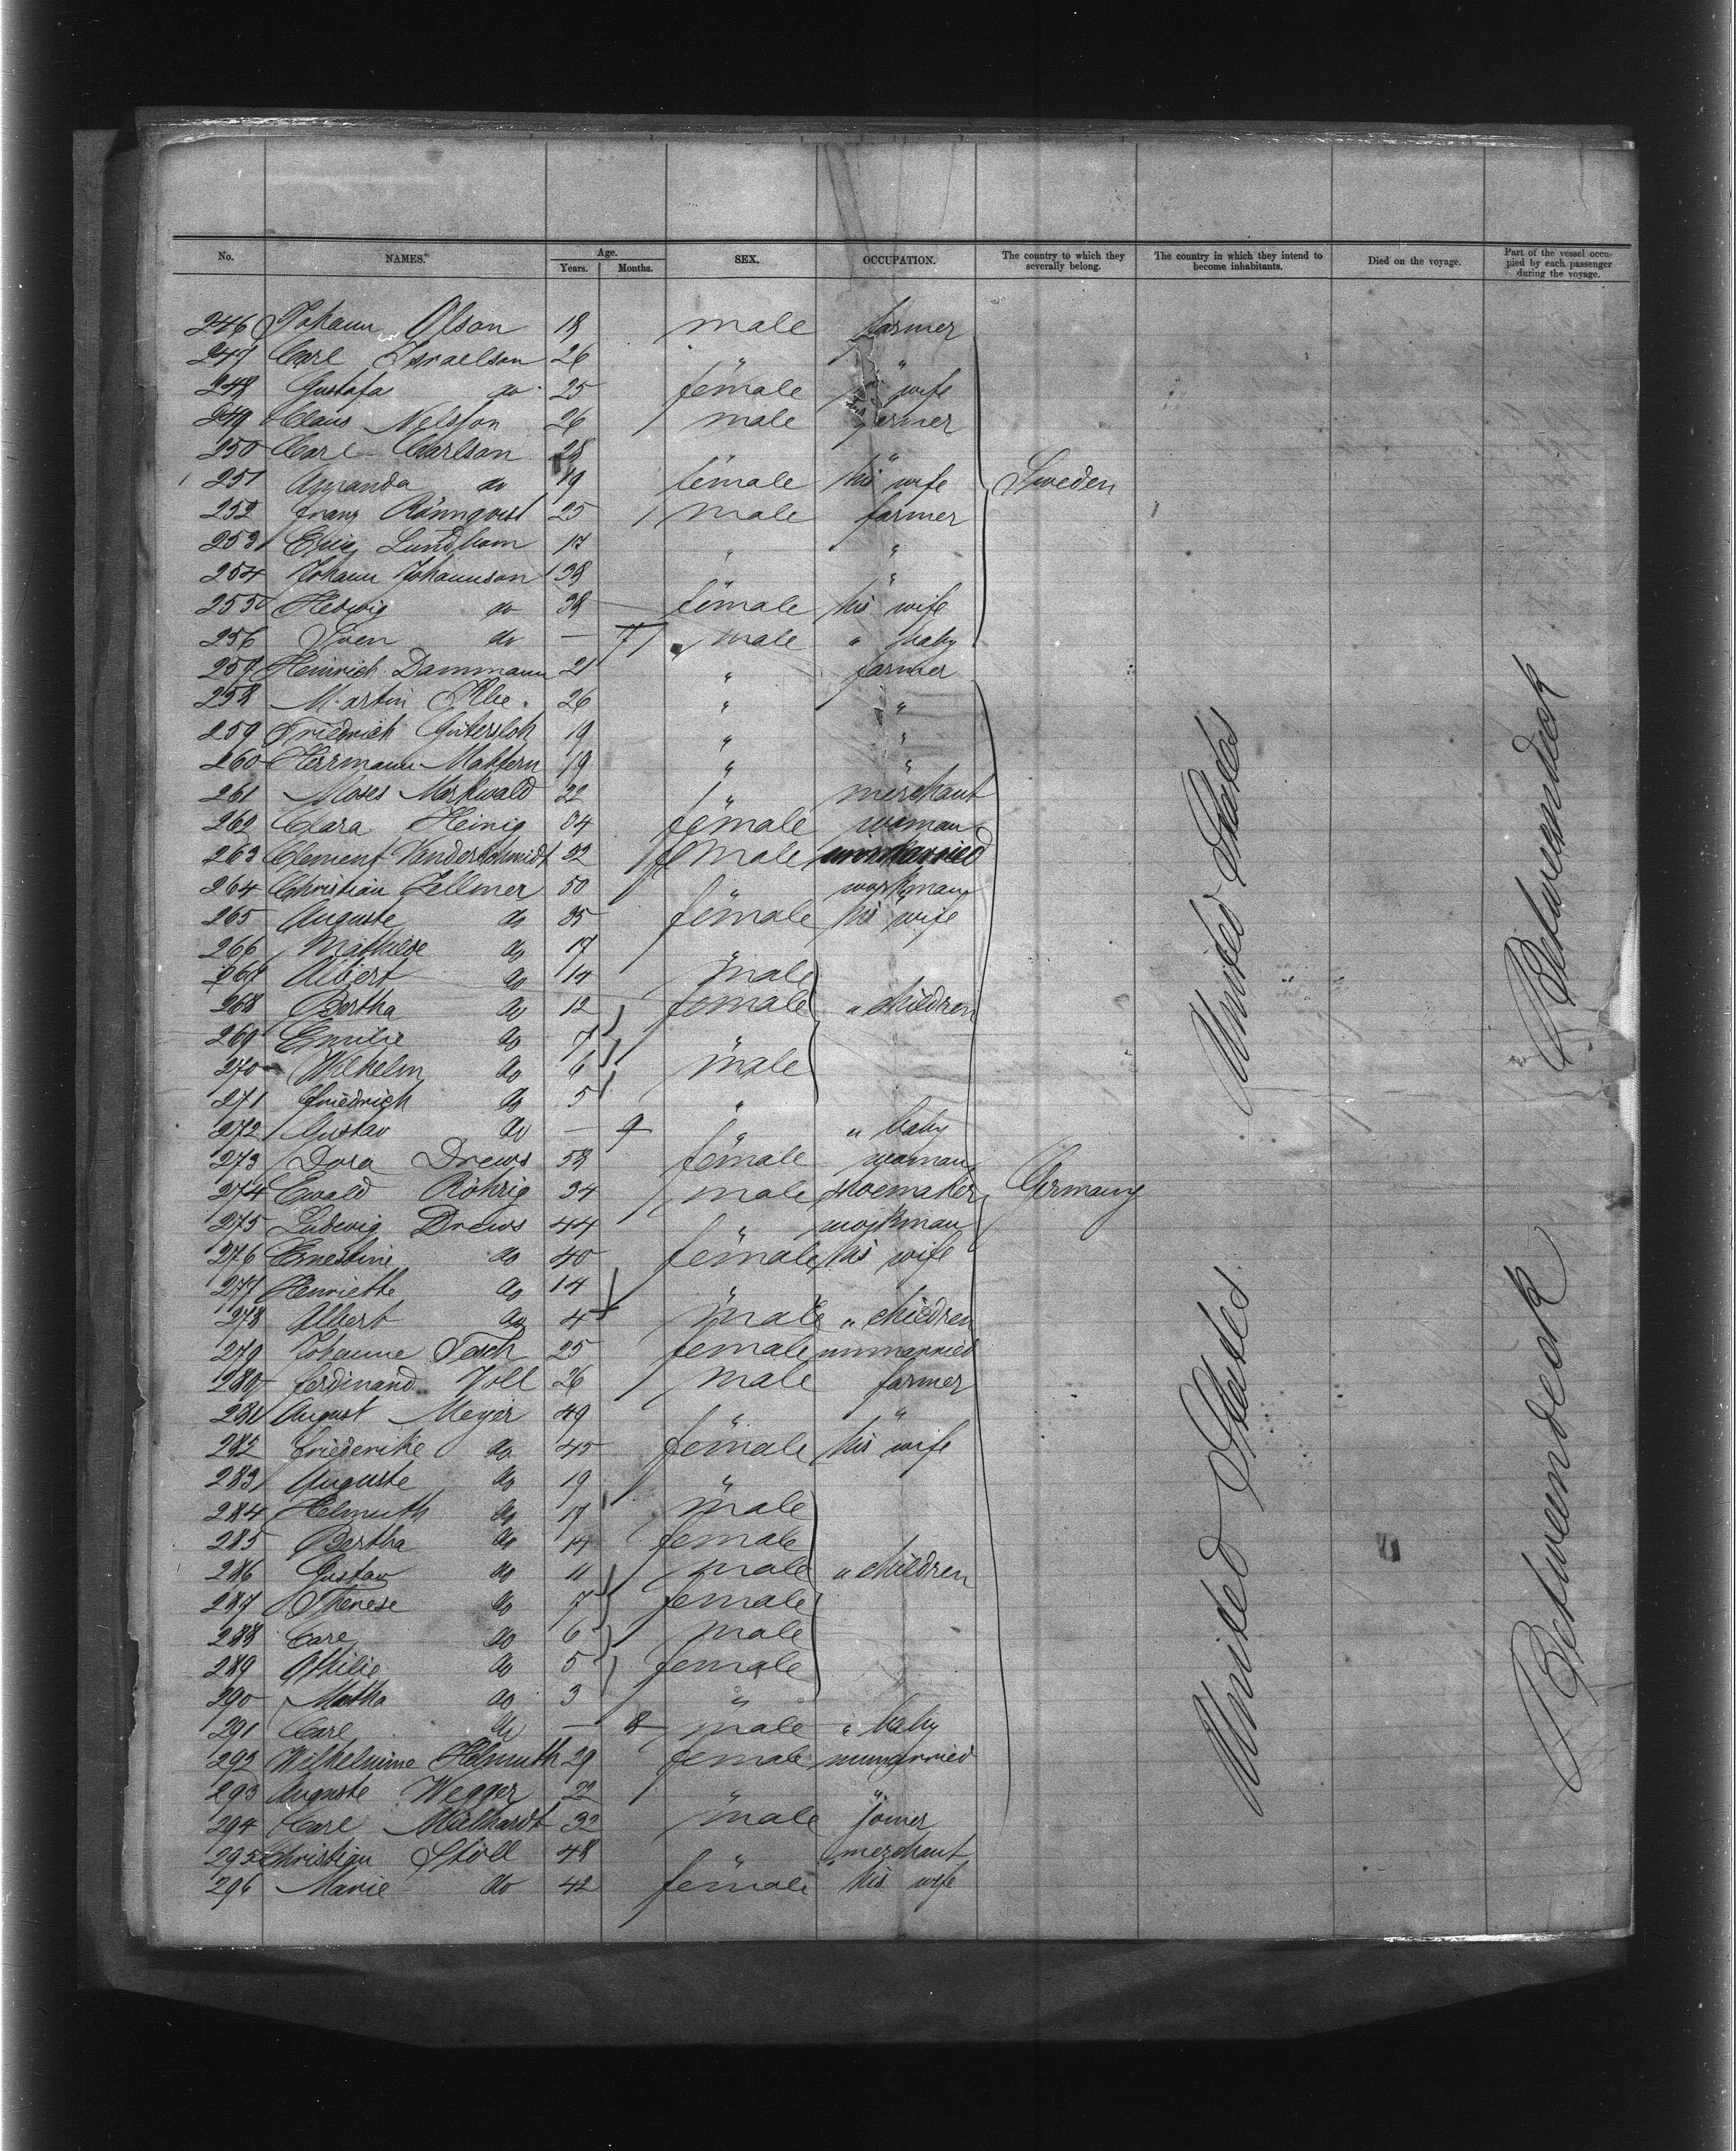 No. NAMES. Age. Years. Months. SEX. OCCUPATION. The country to which they severally belong. The country in which they intend to become inhabitants. Died on the voyage. Part of the vessel occupied by each passenger during the voyage.
246 Johann Olson 18 male farmer
247 Carl Israelson 26 " "
248 Gustafa do 25 female " wife
249 Claus Nelson 26 male farmer
250 Carl Carlson 28 " "
251 Amanda do 19 female his wife Sweden
252 Franz Rönnqvist 25 male farmer
253 Lundbom 17 " "
254 Johann Johannson 38 " "
255 Hedwig do 38 female his wife
256 Sven do — 7 male " baby
257 Heinrich Dammann 21 " farmer
258 Martin 26 " "
259 Friedrich Gütersloh 19 " "
260 Herrmann Mattern 19 " "
261 Moses Markwald 22 " merchant
262 Clara Heinig 34 female woman
263 Clement Vanderschmidt 52 male
264 Christian Zellmer 50 " workman
265 Auguste do 35 female his wife
266 Mathilde do 17 "
267 Albert do 14 male
268 Bertha do 12 female " children
269 Emilie do 7 "
270 Wilhelm do 6 male
271 Friedrich do 5 "
272 Gustav do — 9 " " baby
273 Dora Drews 58 female woman
274 Ewald Röhrig 34 male shoemaker Germany
275 Ludwig Drews 44 " workman
276 Ernestine do 40 female his wife
277 Henriette do 14 "
278 Albert do 4 male " children
279 Johanne Tesch 25 female unmarried
280 Ferdinand Voll 26 male farmer
281 August Meyer 49 " "
282 Friederike do 45 female his wife
283 Auguste do 19 "
284 Helmuth do 17 male
285 Bertha do 14 female
286 Gustav do 11 male " children
287 Therese do 7 female
288 Carl do 6 male
289 Othilie do 5 female
290 Martha do 3 "
291 Carl do — 8 male " baby
292 Wilhelmine Helmuth 29 female unmarried
293 Auguste Wegger 22 " "
294 Carl 32 male joiner
295 Christian Stoll 48 " merchant
296 Marie do 42 female his wife
United States
United States
Betweendeck
Betweendeck